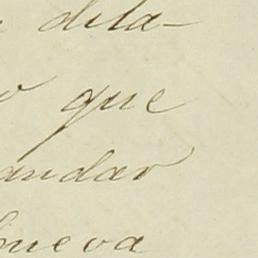 dila-
que
andar
nueva